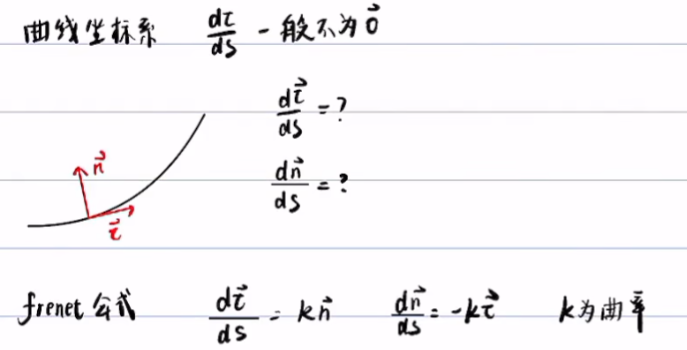 曲线坐标系 dτ/ds 一般不为 0⃗
dτ⃗/ds = ?
dn⃗/ds = ?
n⃗
τ⃗
frenet 公式 dτ⃗/ds = kn⃗ dn⃗/ds = -kτ⃗ k为曲率